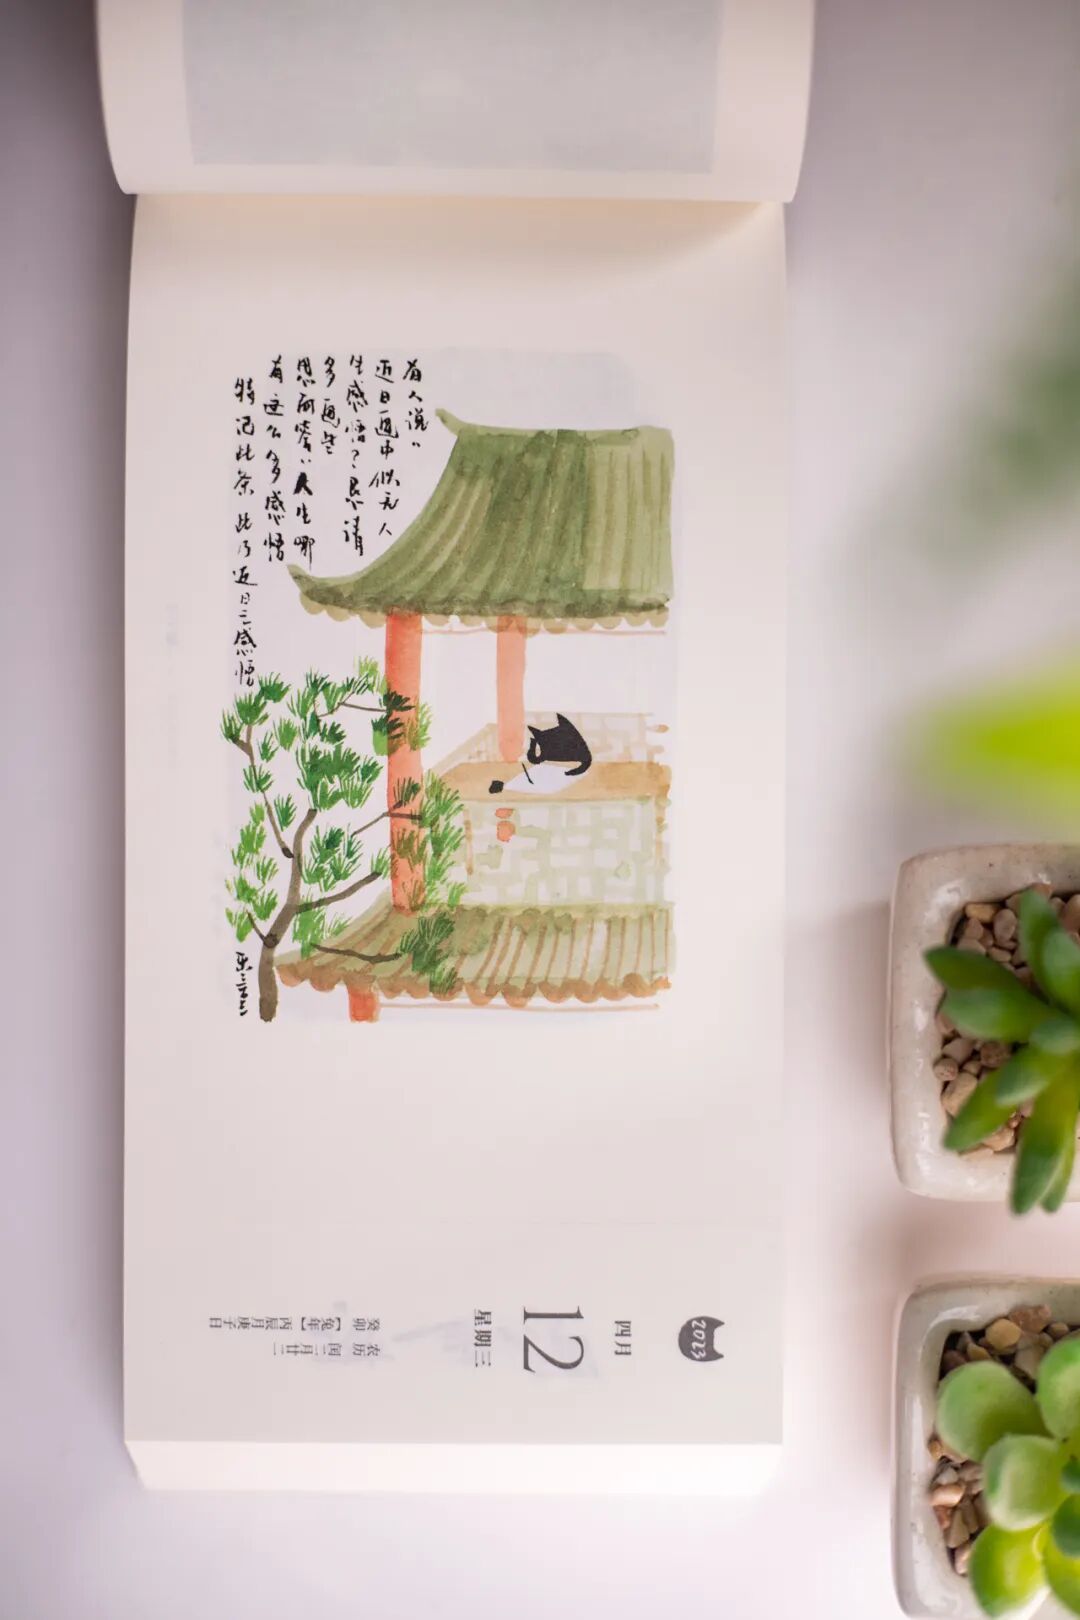 有人说：
近日画中似无人
生感悟？恳请
多画些
思而答：人生哪
有这么多感悟
特记此条 此乃近日之感悟
2023
四月
12
星期三
农历 闰二月廿二
癸卯【兔年】丙辰月庚子日